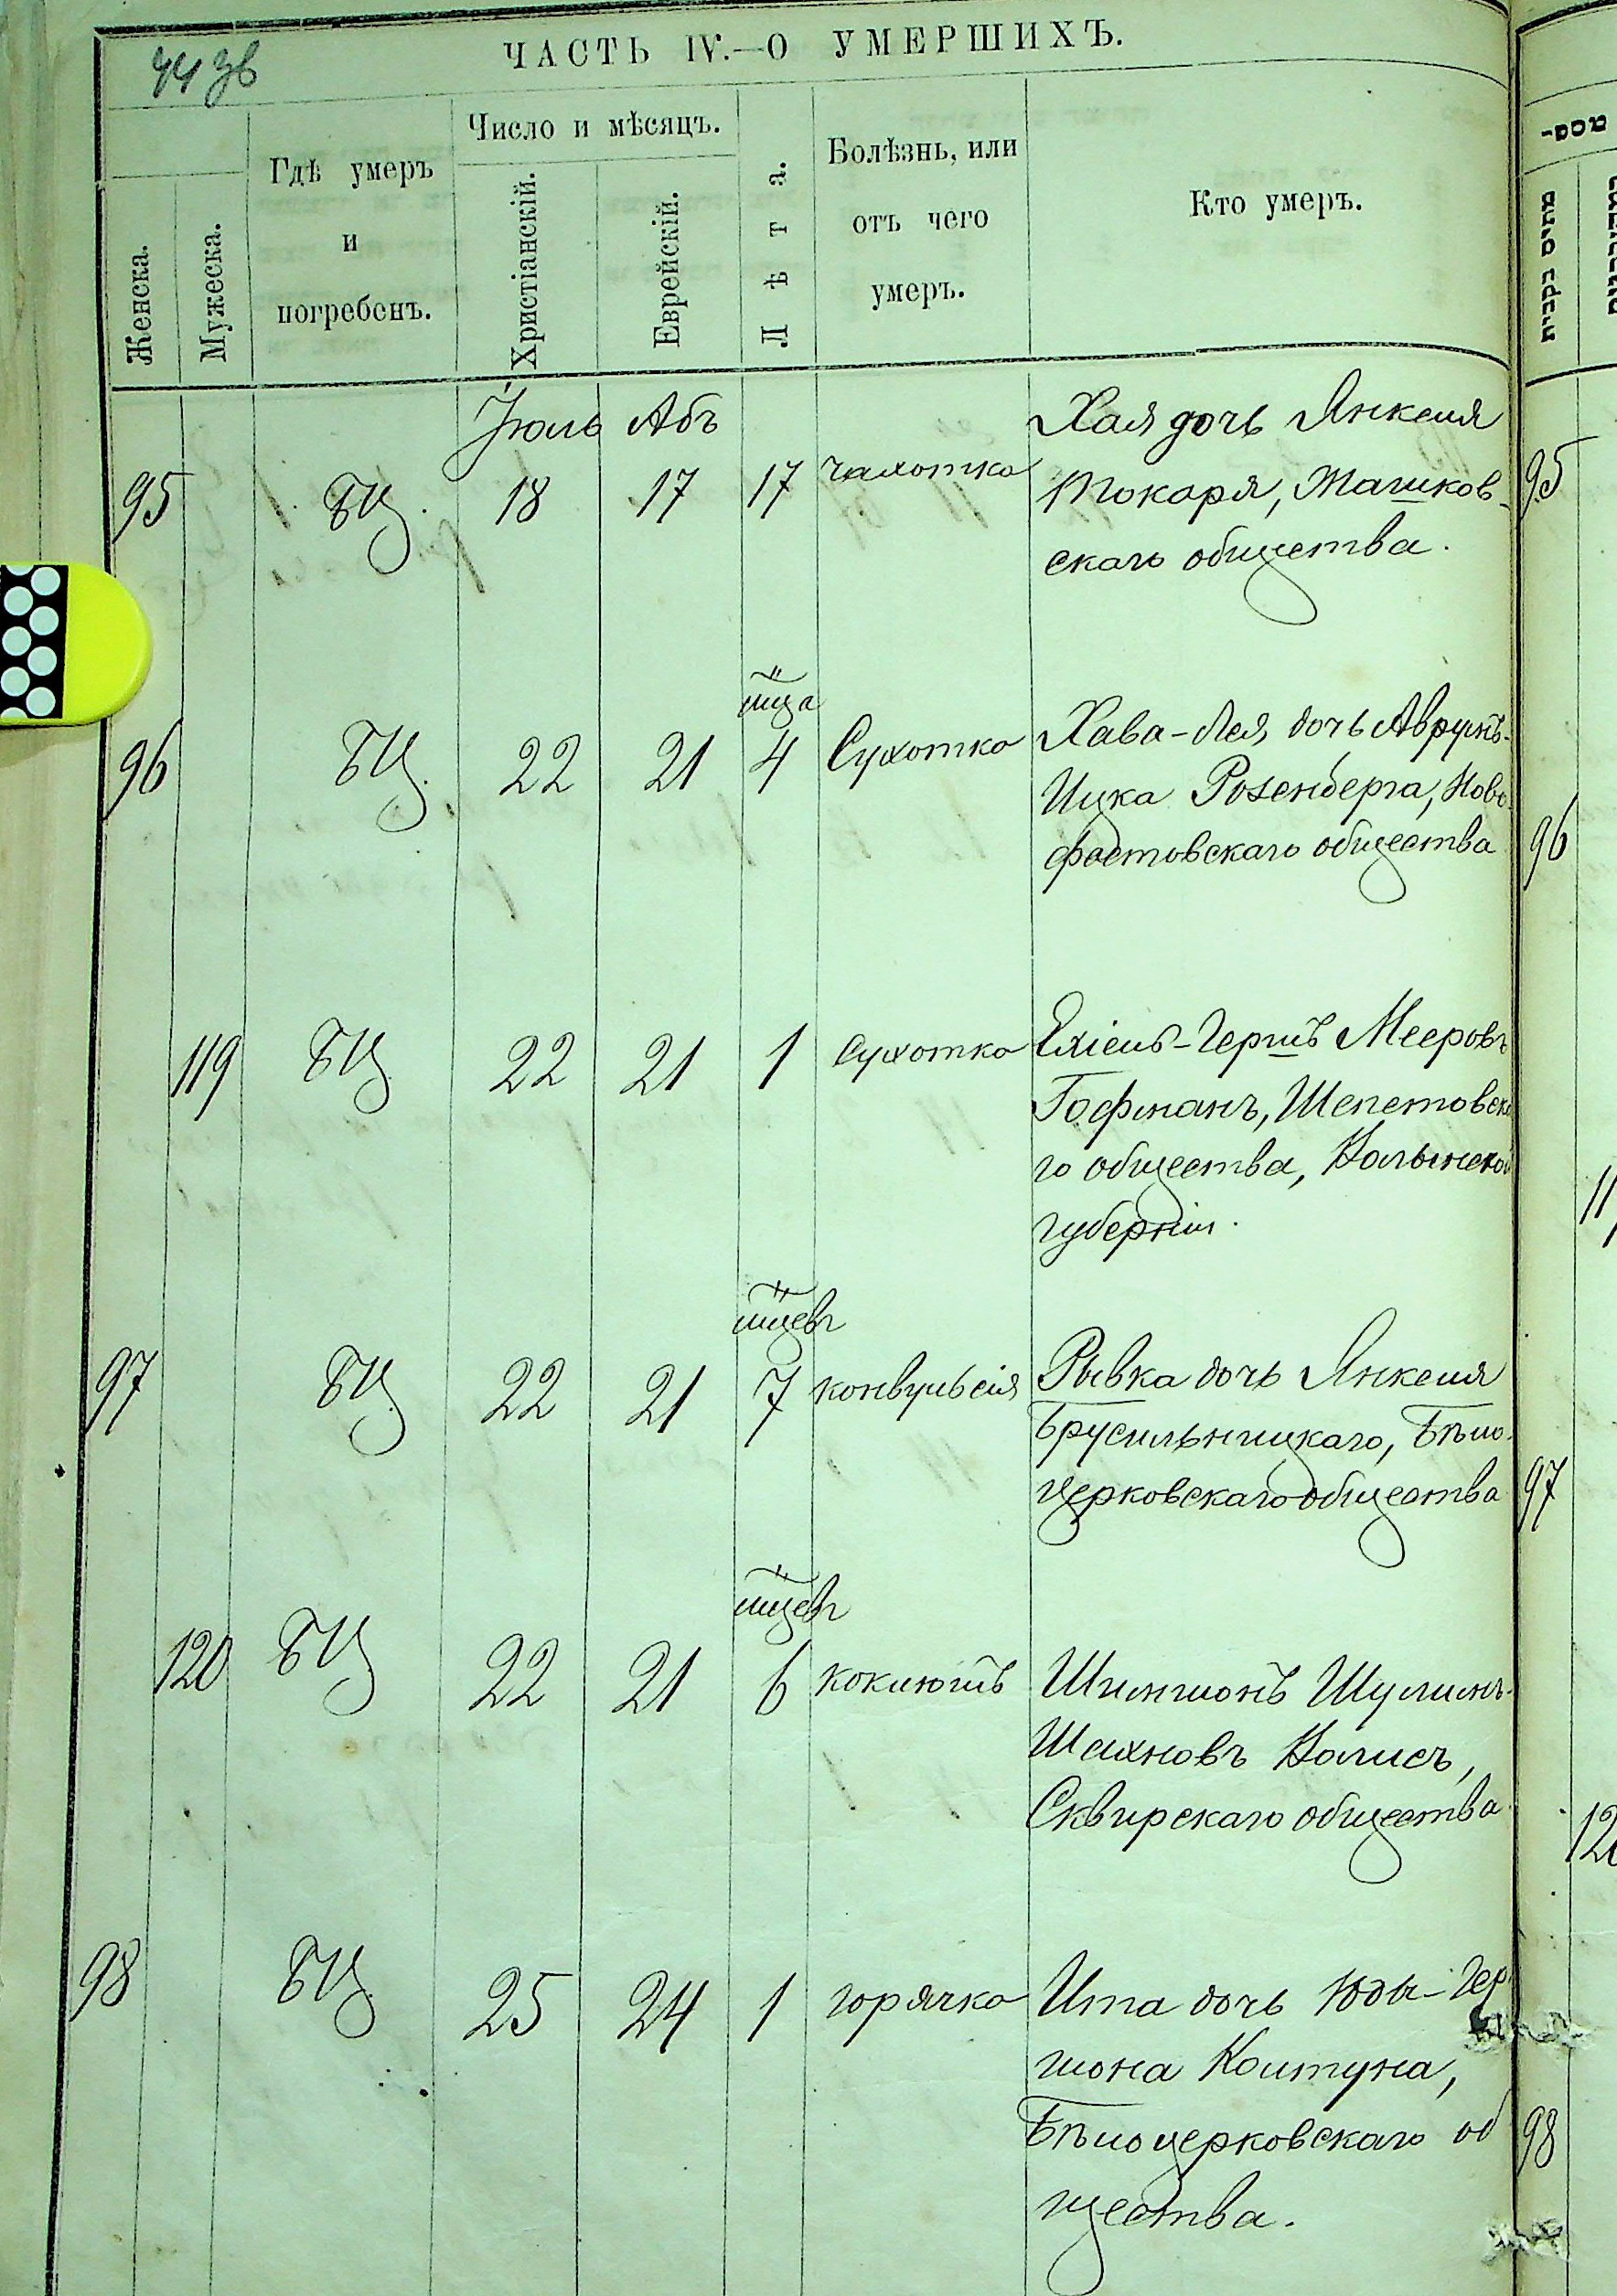 44 зв
ЧАСТЬ IV.—О УМЕРШИХЪ.
Женска.
Мужеска.
Гдѣ умеръ
и
погребенъ.
Число и мѣсяцъ.
Христіанскій.
Еврейскій.
Лѣта.
Болѣзнь, или
отъ чего
умеръ.
Кто умеръ.
מתים נקבות
Іюль Абъ
95 БЦ. 18 17 17 чахотка Хая дочь Янкеля
Токаря, Машков-
скаго общества.
95
мѣца
96 БЦ. 22 21 4 Сухотка Хава-Лея дочь Аврумъ-
Ицка Розенберга, Ново-
фастовскаго общества
96
119 БЦ 22 21 1 Сухотка Ехіель-Гершъ Мееровъ
Гофманъ, Шепетовска
го общества, Волынской
губерніи.
мѣцевъ
97 БЦ 22 21 7 конвульсія Рывка дочь Янкеля
Брусильницкаго, Бѣло-
церковскаго общества
97
мѣцевъ
120 БЦ 22 21 6 коклюшъ Шимшонъ Шулимъ-
Шахновъ Волисъ,
Сквирскаго общества
98 БЦ 25 24 1 горячка Ита дочь Юды-Гер
шона Колтуна,
Бѣлоцерковскаго об
щества.
98